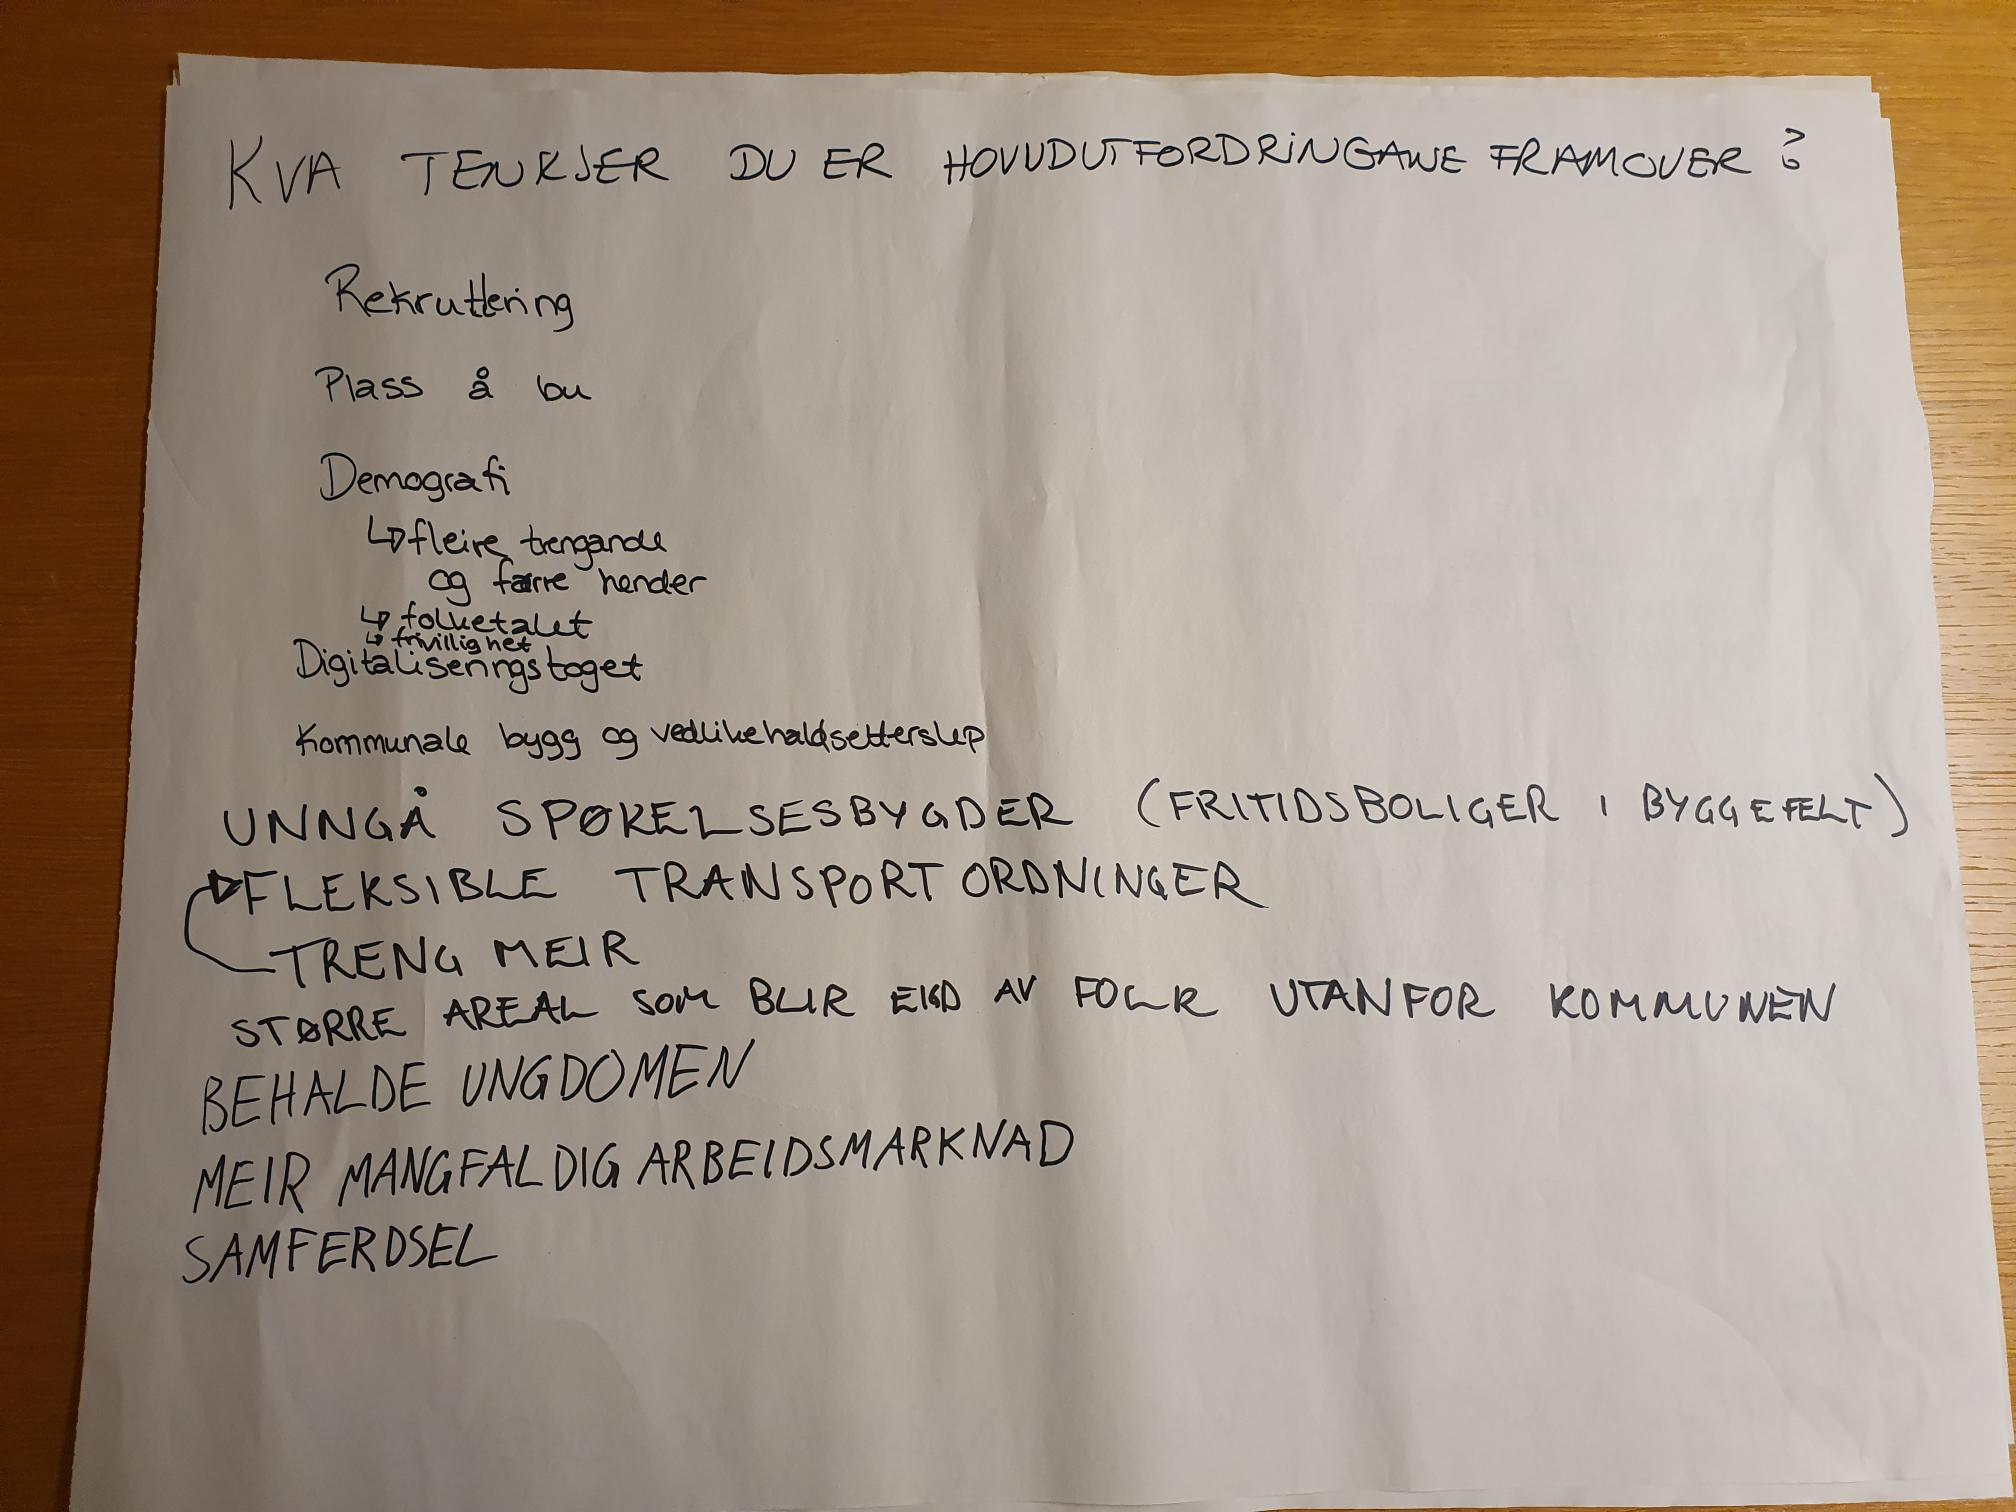 KVA TENKJER DU ER HOVUDUTFORDRINGANE FRAMOVER?
Rekruttering
Plass å bu
Demografi
↳ fleire trengande
og færre hender
↳ folketalet
↳ frivillighet
Digitaliseringstoget
Kommunale bygg og vedlikehaldsetterslep
UNNGÅ SPØKELSESBYGDER (FRITIDSBOLIGER I BYGGEFELT)
FLEKSIBLE TRANSPORTORDNINGER
TRENG MEIR
STØRRE AREAL SOM BLIR EIGD AV FOLK UTANFOR KOMMUNEN
BEHALDE UNGDOMEN
MEIR MANGFALDIG ARBEIDSMARKNAD
SAMFERDSEL